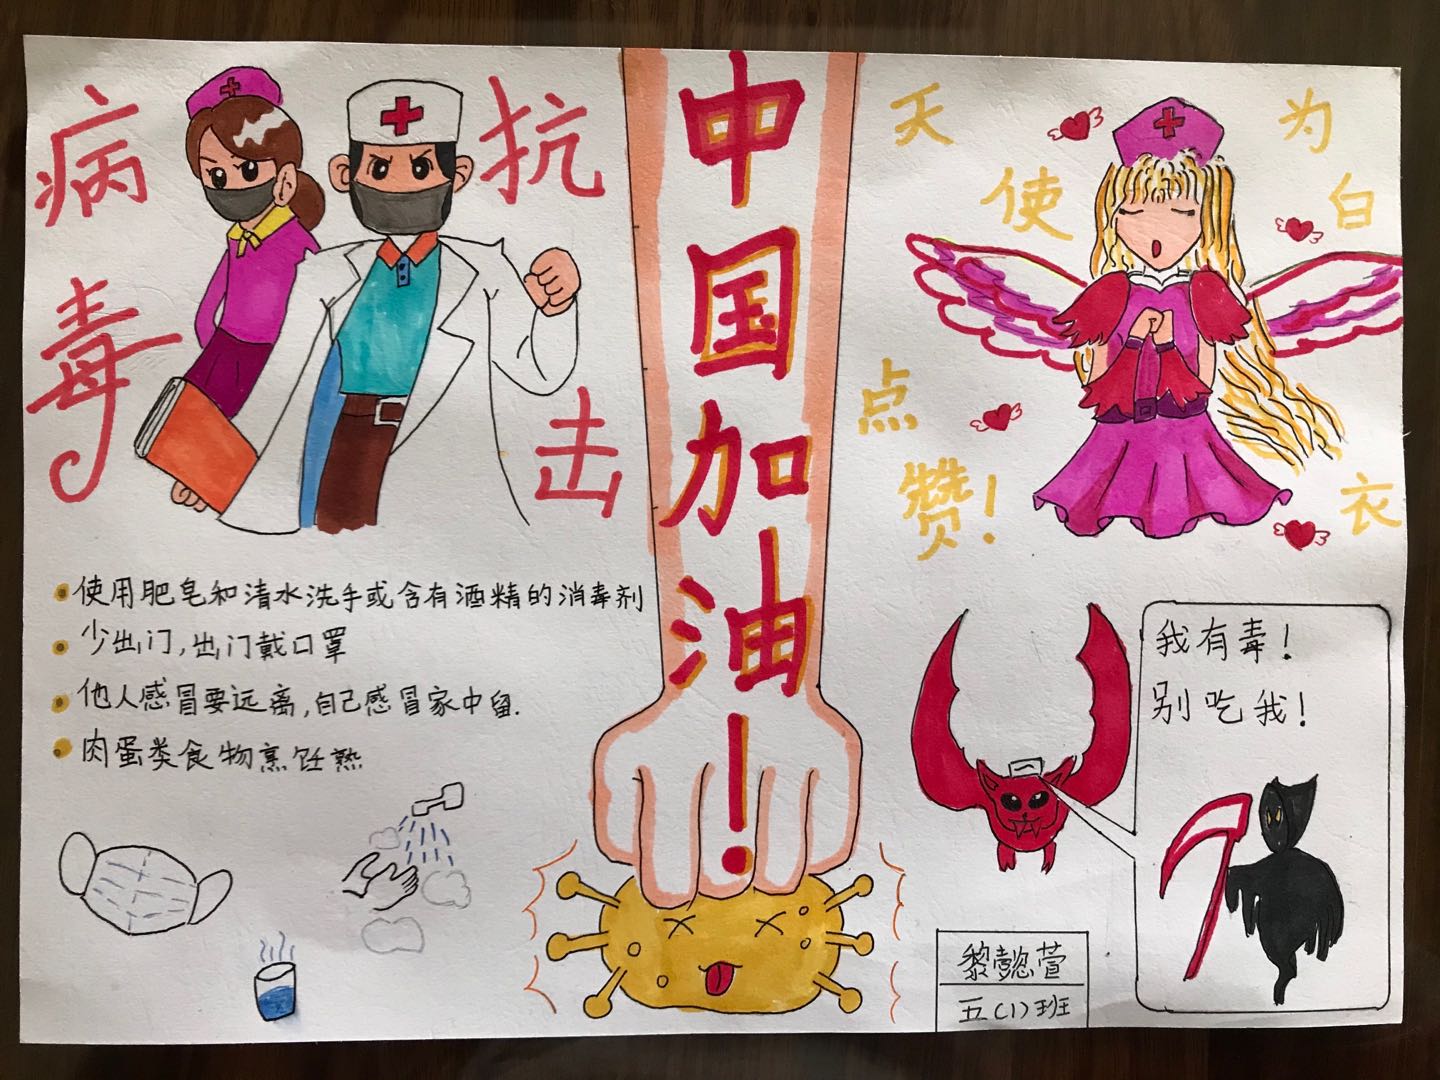 抗击
病毒
中国加油！
为天使
白衣
点赞！
使用肥皂和清水洗手或含有酒精的消毒剂
少出门,出门戴口罩
他人感冒要远离,自己感冒家中留.
肉蛋类食物烹饪熟
我有毒！
别吃我！
黎懿萱
五(1)班